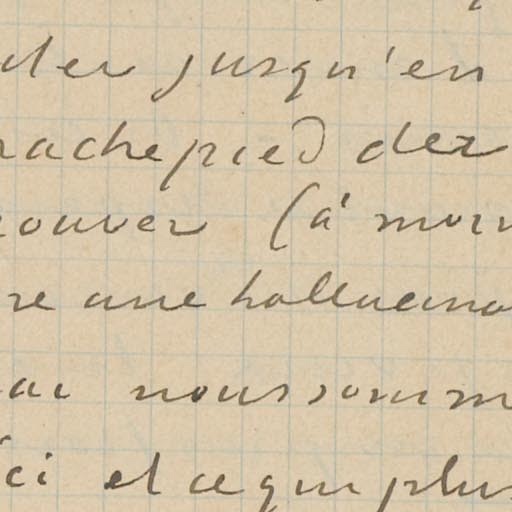 jusqu'en
rachepied der
rouver (à moin
re une hallucina
ai nous somm
ici et ce qui plus